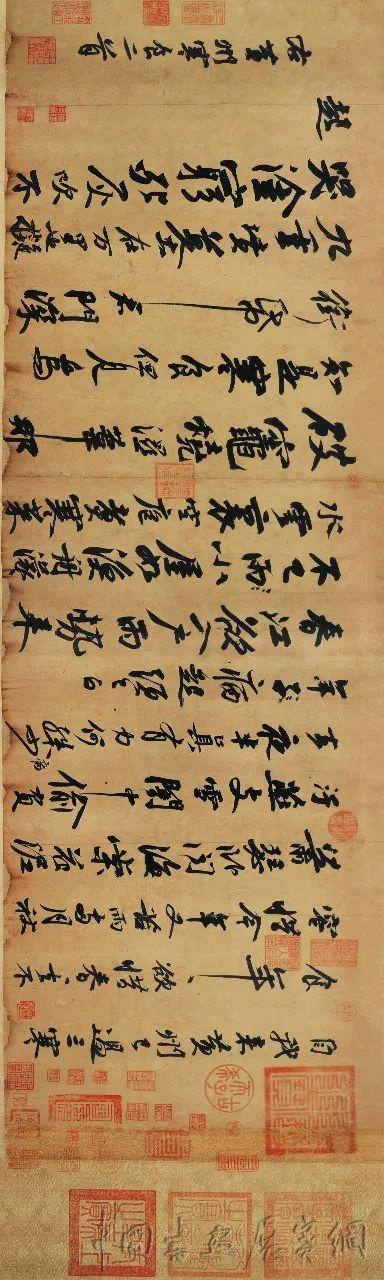 自我來黃州已過三寒
食年年欲惜春春去不
容惜今年又苦雨兩月秋
蕭瑟卧聞海棠花泥
汙燕支雪闇中偷負
去夜半真有力何殊病少
年子病起頭已白
春江欲入戶雨勢來
不已小屋如漁舟濛濛
水雲裏空庖煮寒菜
破竈燒濕葦那
知是寒食但見烏
銜帋君門深
九重墳墓在万里也擬
哭塗窮死灰吹不
起
右黃州寒食二首